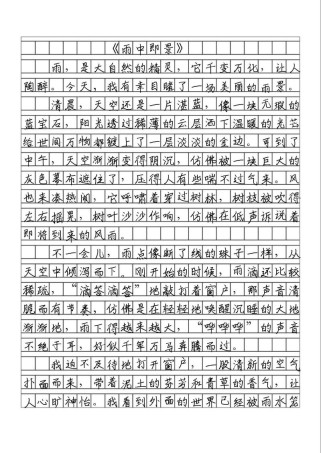 《雨中即景》
雨，是大自然的精灵，它千变万化，让人
陶醉。今天，我有幸目睹了一场美丽的雨景。
清晨，天空还是一片湛蓝，像一块无瑕的
蓝宝石，阳光透过稀薄的云层洒下温暖的光芒
给世间万物都镀上了一层淡淡的金边。可到了
中午，天空渐渐变得阴沉，仿佛被一块巨大的
灰色幕布遮住了，压得人有些喘不过气来。风
也来凑热闹，它呼啸着穿过树林，树枝被吹得
左右摇晃，树叶沙沙作响，仿佛在低声诉说着
即将到来的风雨。
不一会儿，雨点像断了线的珠子一样，从
天空中倾泻而下。刚开始的时候，雨滴还比较
稀疏，“滴答滴答”地敲打着窗户，那声音清
脆而有节奏，仿佛是在轻轻地唤醒沉睡的大地
渐渐地，雨下得越来越大，“哗哗哗”的声音
不绝于耳，好似千军万马奔腾而过。
我迫不及待地打开窗户，一股清新的空气
扑面而来，带着泥土的芬芳和青草的香气，让
人心旷神怡。我看到外面的世界已经被雨水笼